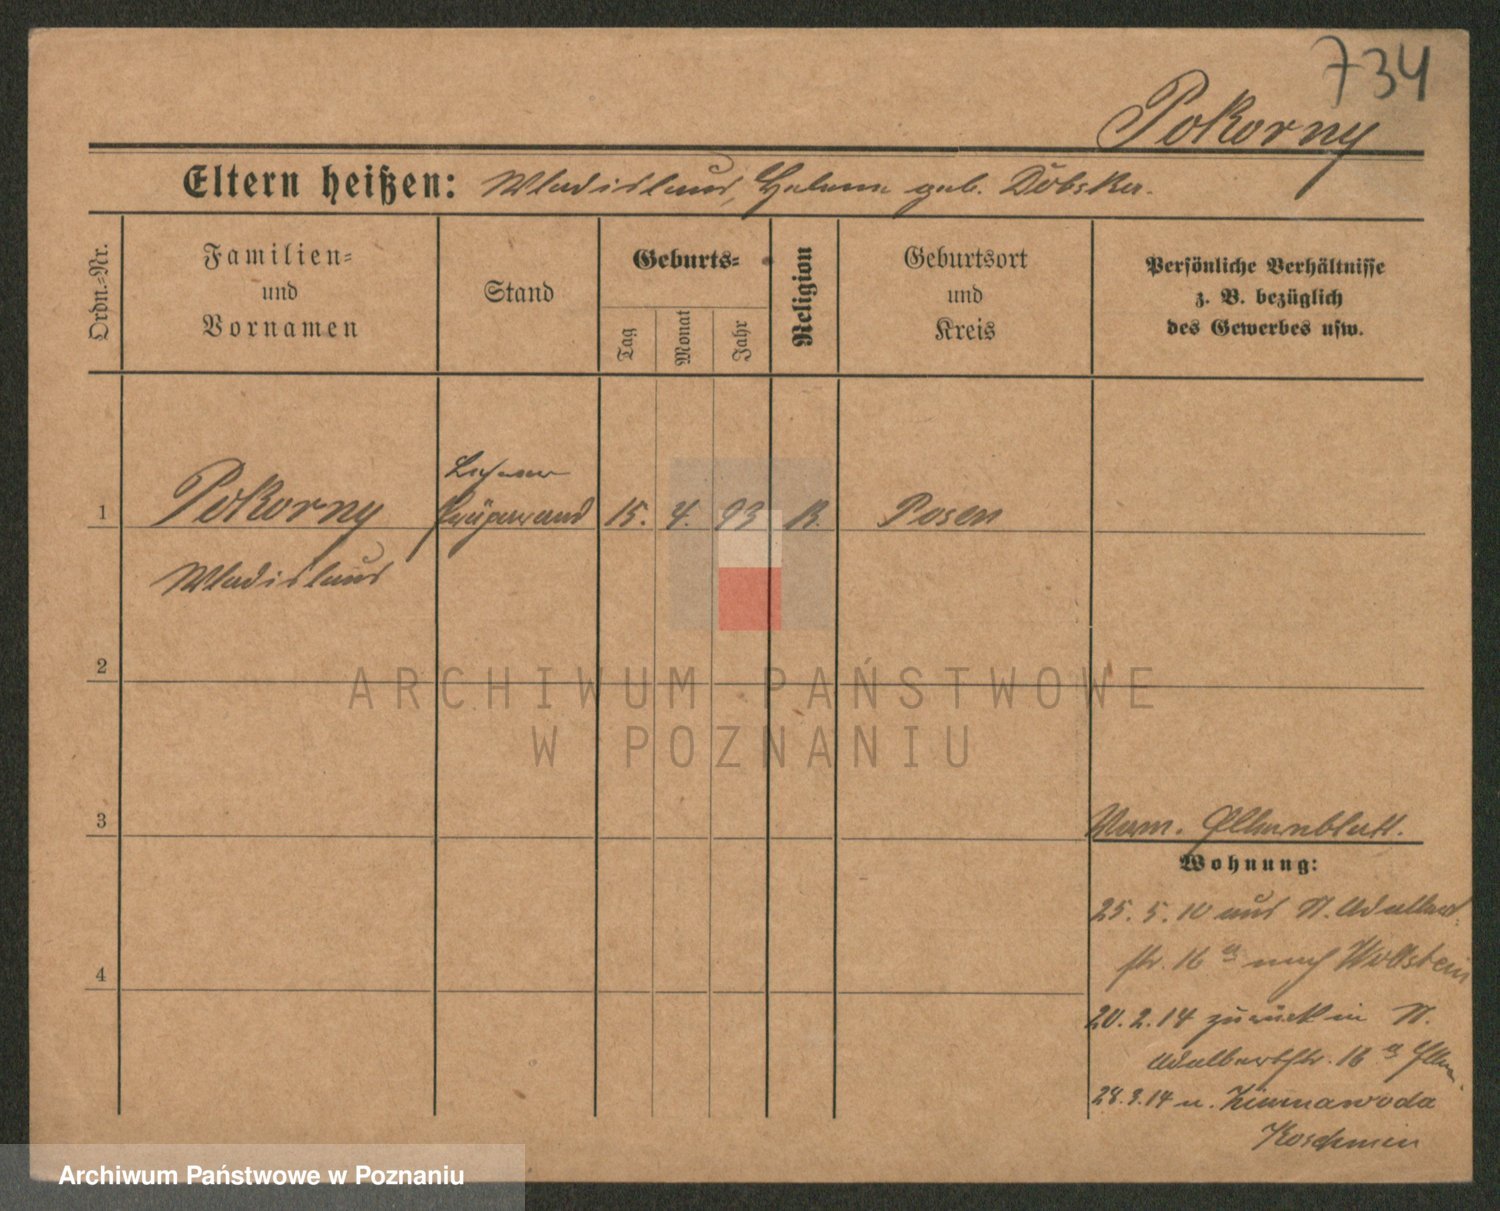 734
Pokorny
Eltern heißen: Wladislaus, Helene geb. Dobska.
Ordn.-Nr.
Familien-
und
Vornamen
Stand
Geburts-
Tag
Monat
Jahr
Religion
Geburtsort
und
Kreis
Persönliche Verhältnisse
z. B. bezüglich
des Gewerbes usw.
1
Pokorny
15. 4. 93 K. Posen
Wladislaus
2
ARCHIWUM PAŃSTWOWE
W POZNANIU
3
Elternblatt.
Wohnung:
25. 5. 10 aus St. Adalbert
str. 16 a nach Wollstein
4
20. 2. 14 zurück in St.
Adalbertstr. 16 a
28. 3. 14 n. Zimnawoda
Koschmin
Archiwum Państwowe w Poznaniu